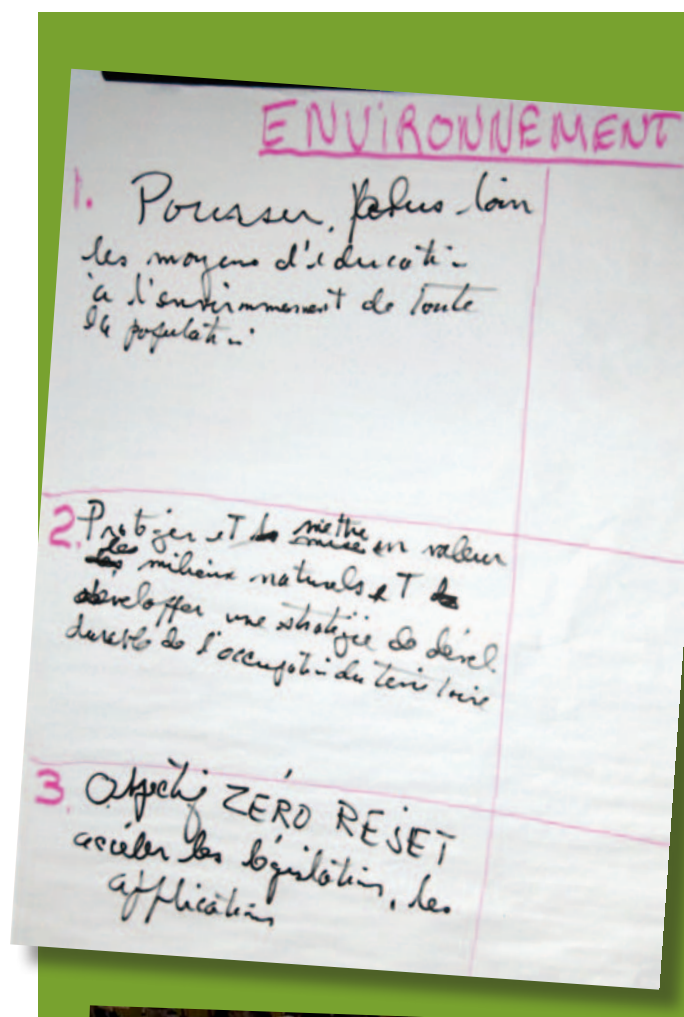 ENVIRONNEMENT
1. Pousser plus loin
les moyens d'éducati-
à l'environnement de toute
la populati-
2. Protéger et mettre en valeur
les milieux naturels et
développer une stratégie de dével.
durable de l'occupation du territoire
3. Objectif ZÉRO REJET
accéler les législations, les
applications